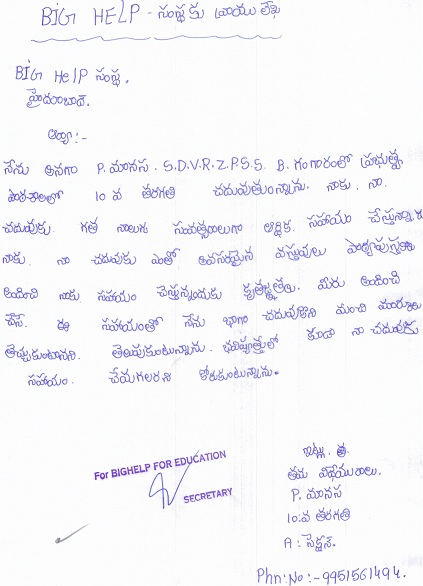 BIG HELP - సంస్థకు వ్రాయు లేఖ
BIG HelP సంస్థ.
హైదరాబాద్.
ఆర్యా :-
నేను అనగా P. మానస. S.D.V.R.Z.P.S.S. B. గంగారంలో ప్రభుత్వ
పాఠశాలలో 10 వ తరగతి చదువుతున్నాను. నాకు, నా
చదువుకు గత నాలుగు సంవత్సరాలుగా ఆర్థిక సహాయం చేస్తున్నారు
నాకు. నా చదువుకు ఎంతో అవసరమైన వస్తువులు పాఠ్యపుస్తకాలు
అందించి నాకు సహాయం చేస్తున్నందుకు కృతజ్ఞతలు. మీరు అందించి
చేసే ఈ సహాయంతో నేను బాగా చదువుకొని మంచి మార్కులు
తెచ్చుకుంటానని తెలుపుకుంటున్నాను. భవిష్యత్తులో కూడా నా చదువుకు
సహాయం చేయగలరని కోరుకుంటున్నాను.
For BIGHELP FOR EDUCATION
SECRETARY
ఇట్లు,
తమ విధేయురాలు.
P. మానస
10వ తరగతి
A : సెక్షన్.
Phn:No:- 9951561494.